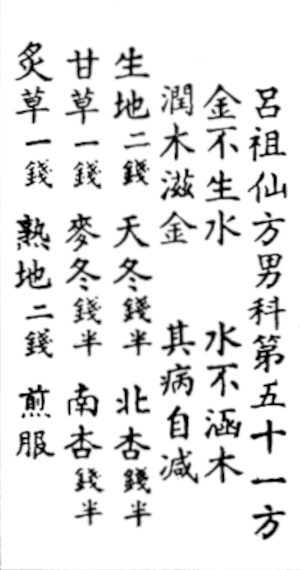 呂祖仙方男科第五十一方
金不生水 水不涵木
潤木滋金 其病自減
生地二錢 天冬錢半 北杏錢半
甘草一錢 麥冬錢半 南杏錢半
炙草一錢 熟地二錢 煎服